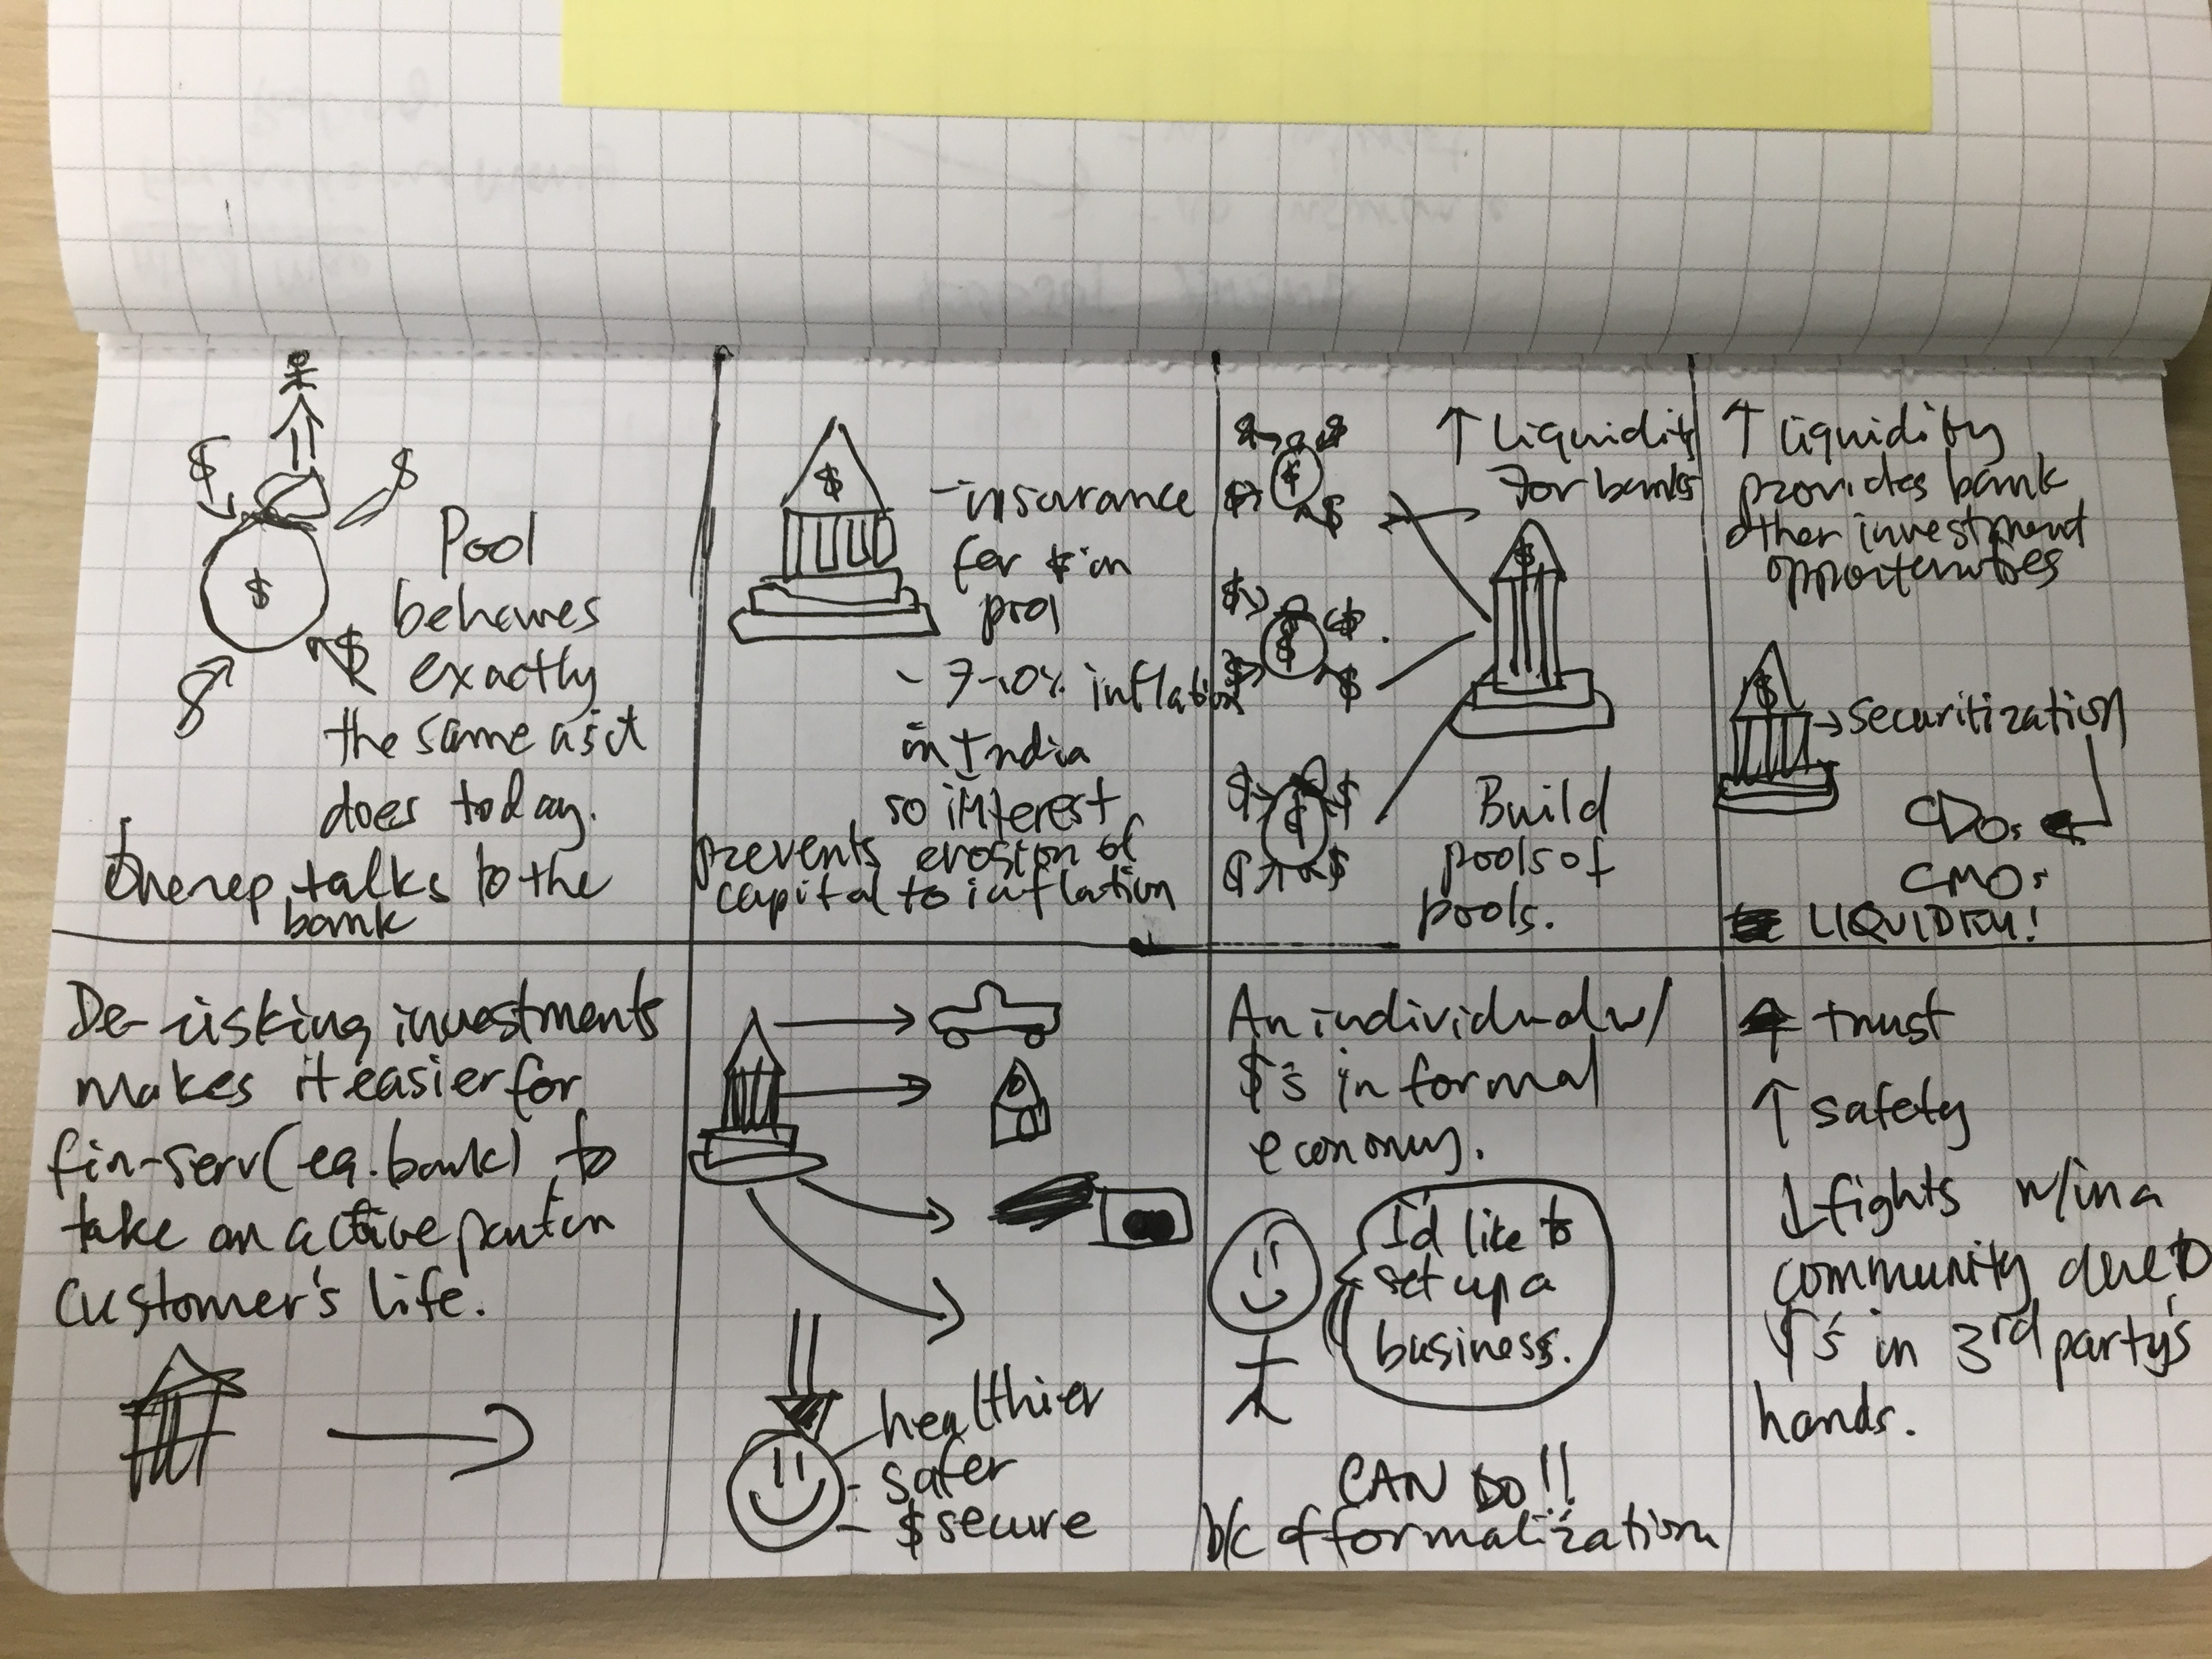 $
$
$
$
$
Pool
behaves
exactly
the same as it
does today.
One rep talks to the
bank
$
- insurance
for $ in
pool
~ 7-10% inflation
in India
so interest
prevents erosion of
capital to inflation
↑ liquidity
for banks
$
$
$
$
$
$
$
$
$
$
Build
pools of
pools.
↑ liquidity
provides bank
other investment
opportunities
$
→ securitization
CDOs
CMOs
LIQUIDITY!
De-risking investments
makes it easier for
fin-serv (eg. bank) to
take an active part in
customer's life.
healthier
- safer
- $ secure
An individual w/
$'s in formal
economy.
I'd like to
set up a
business.
CAN DO!!
b/c of formalization
↑ trust
↑ safety
↓ fights w/in a
community due to
$'s in 3rd party's
hands.